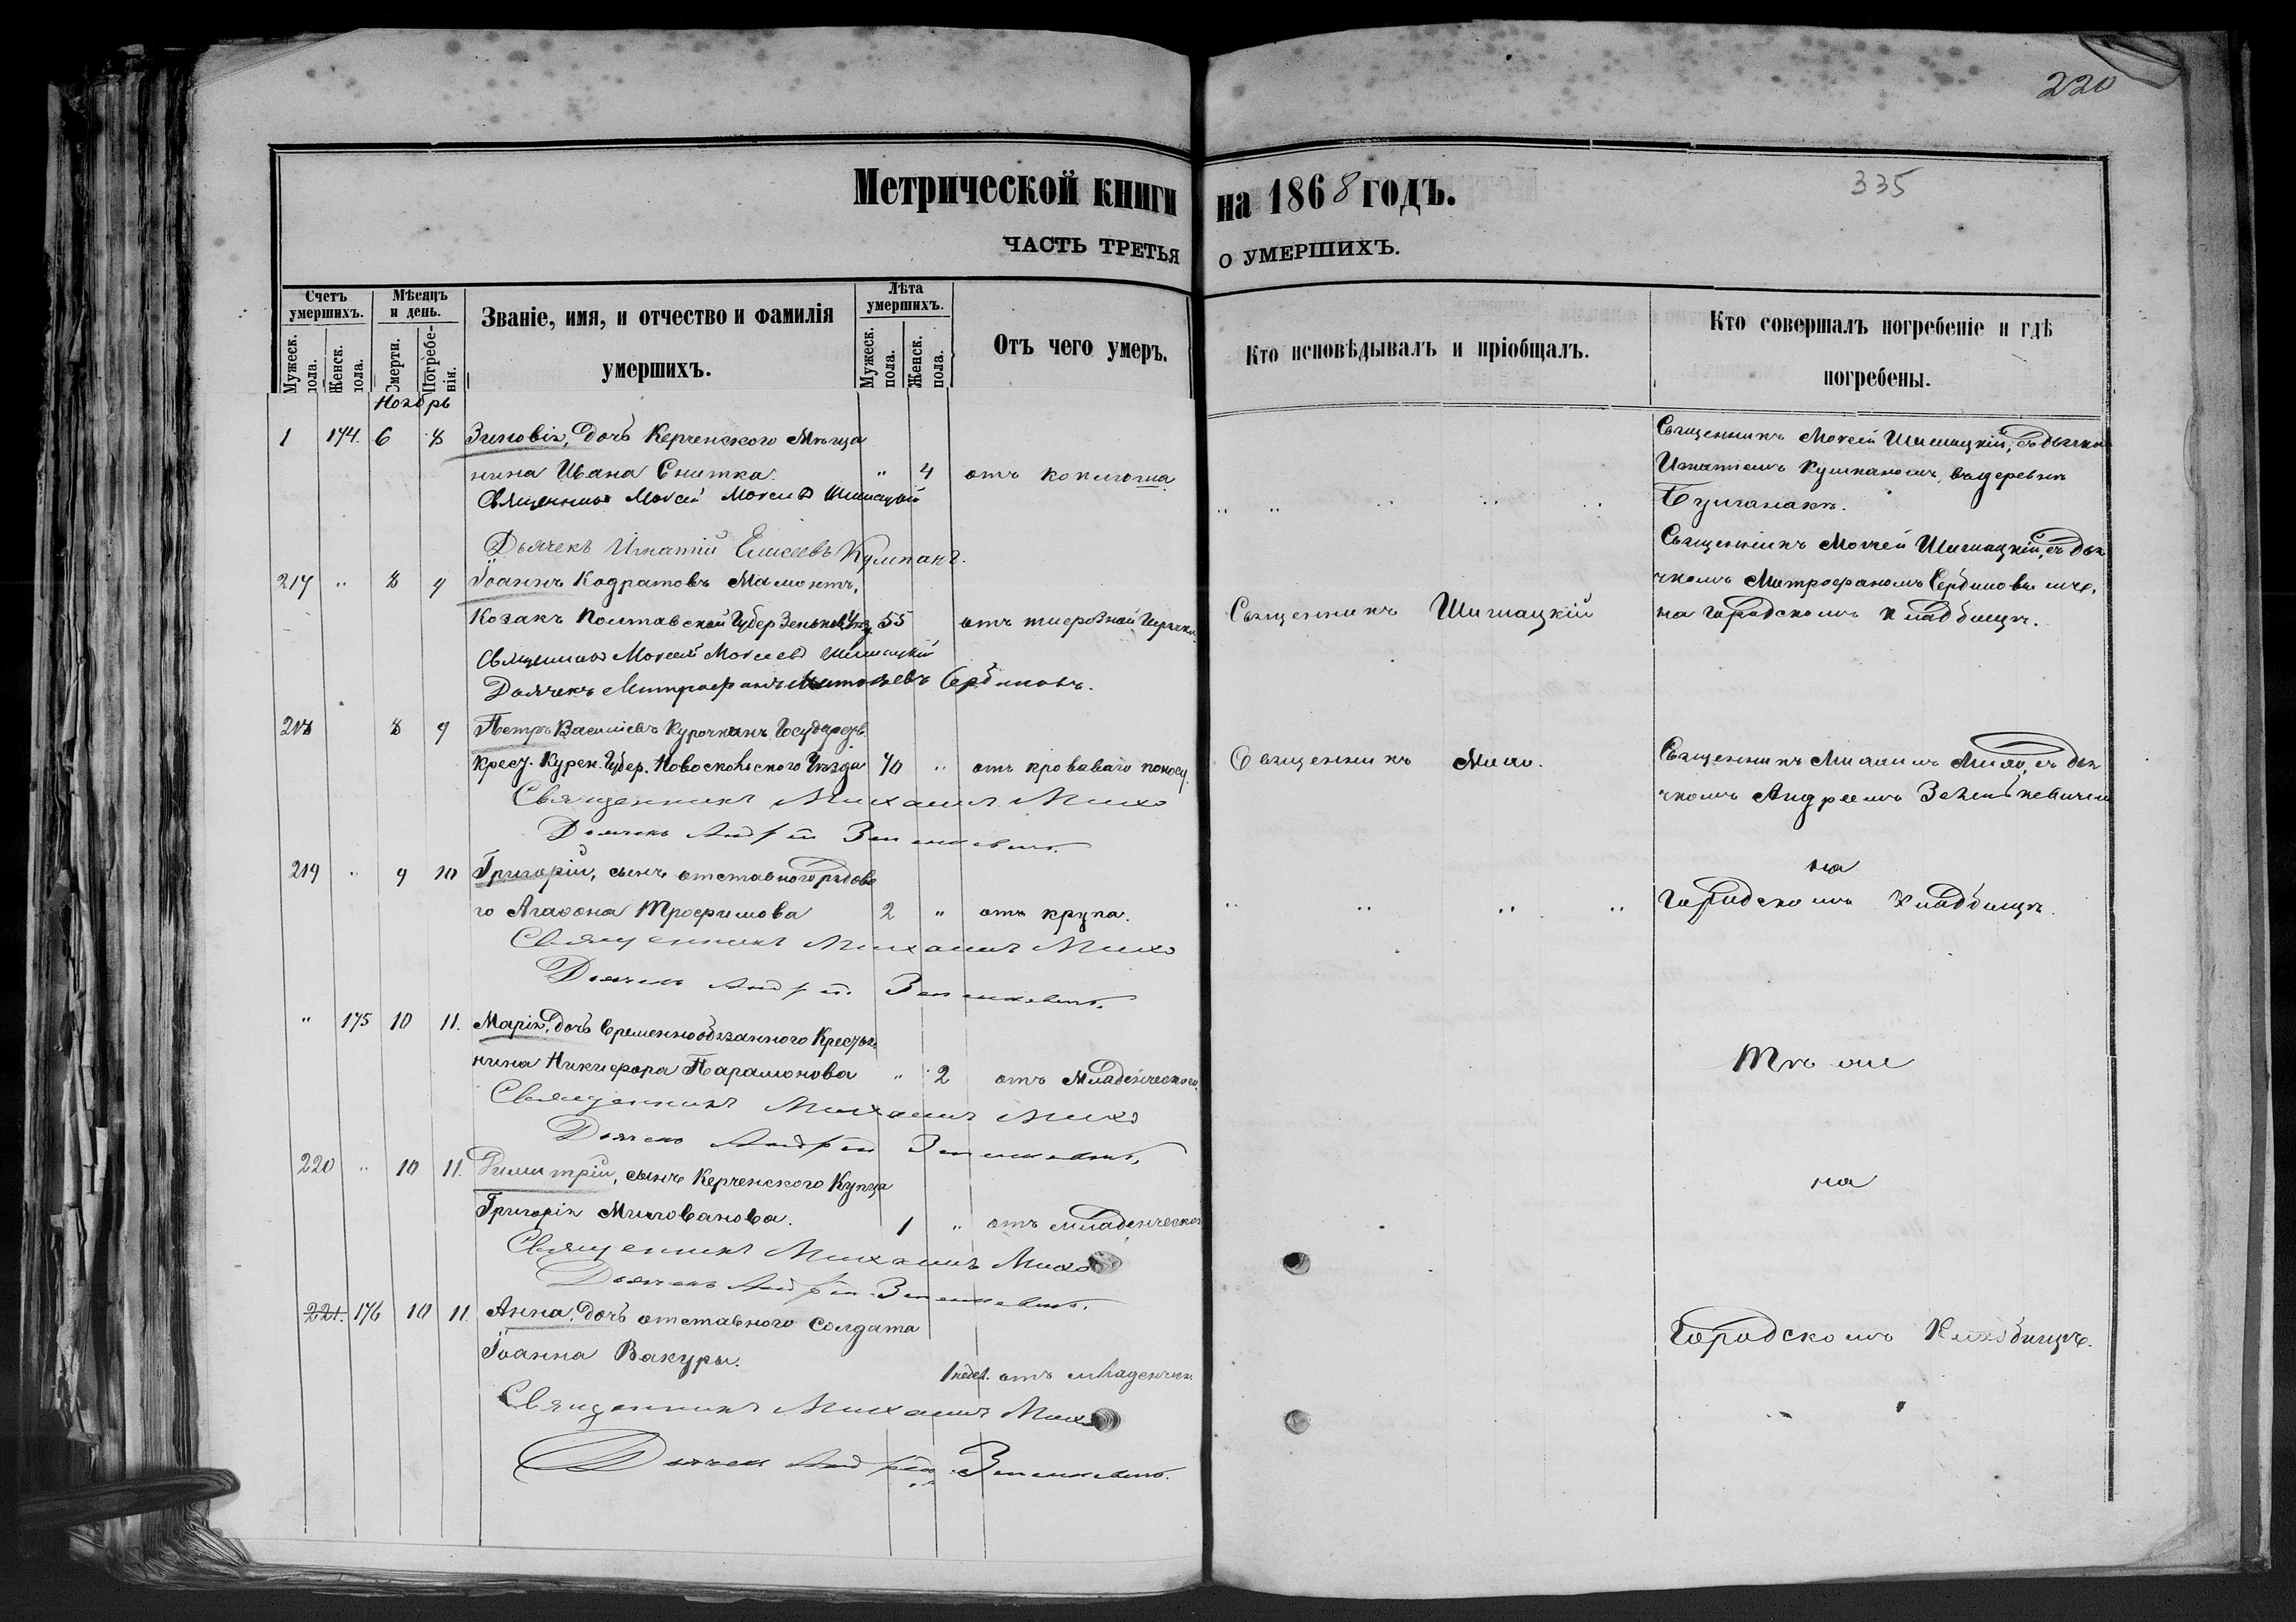 220
335
Метрической книги на 1868 годъ.
ЧАСТЬ ТРЕТЬЯ О УМЕРШИХЪ.
Счетъ умершихъ.
Мужеск. пола.
Женск. пола.
Мѣсяцъ и день.
Смерти.
Погребенія.
Званіе, имя, и отчество и фамилія
умершихъ.
Лѣта умершихъ.
Мужеск. пола.
Женск. пола.
Отъ чего умеръ.
Кто исповѣдывалъ и пріобщалъ.
Кто совершалъ погребеніе и гдѣ
погребены.
Ноябрь
1 174. 6 8 Зиновія, дочь Керченского Мѣща
нина Ивана Снитка. " 4 отъ
Священникъ Моисей Моисеевъ Шишацкій
Дьячекъ Игнатій Елисеевъ Кулпакъ.
Священникъ Моисей Шишацкій, съ дьячкомъ
Игнатіемъ въ деревнѣ
Булганакъ.
217 " 8 9 Іоаннъ Кодратовъ Мамонтъ,
Козакъ Полтавской Губер Зеньков. Уѣз. 55 отъ
Священникъ Моисей Моисеевъ Шишацкій
Дьячекъ Митрофанъ Сербиновъ.
Священникъ Шишацкій
Священникъ Моисей Шишацкій, съ дья
чкомъ Митрофаномъ Сербиновымъ,
на Городскомъ кладбищѣ.
218 8 9 Петръ Василіевъ Курочкинъ Государств.
крест. Курск. Губер. Новооскольского Уѣзда 40 " отъ кроваваго поносу.
Священникъ Михаилъ Михо
Дьячекъ Андрей Зеленкевичъ.
Священникъ Михо.
Священникъ Михаилъ Михо, съ дья
чкомъ Андреемъ
219 " 9 10 Григорій, сынъ отставного рядово
го Агафона Трофимова 2 " отъ крупа.
Священникъ Михаилъ Михо
Дьячекъ Андрей Зеленкевичъ.
на
Городскомъ Кладбищѣ.
" 175 10 11. Марія, дочь временнообязанного Крестья
нина Никифора Парамонова " 2 отъ Младенческого.
Священникъ Михаилъ Михо
Дьячекъ Андрей Зеленкевичъ.
Тѣ же
220 " 10 11. Димитрій, сынъ Керченского Купца
Григорія Милованова. 1 " отъ младенческог
Священникъ Михаилъ Михо
Дьячекъ Андрей Зеленкевичъ.
на
221. 176 10 11. Анна, дочь отставного солдата
Іоанна Вакуры. 1 недел. отъ младенческ.
Священникъ Михаилъ Михо
Дьячекъ Андрей Зеленкевичъ.
Городскомъ Кладбищѣ.